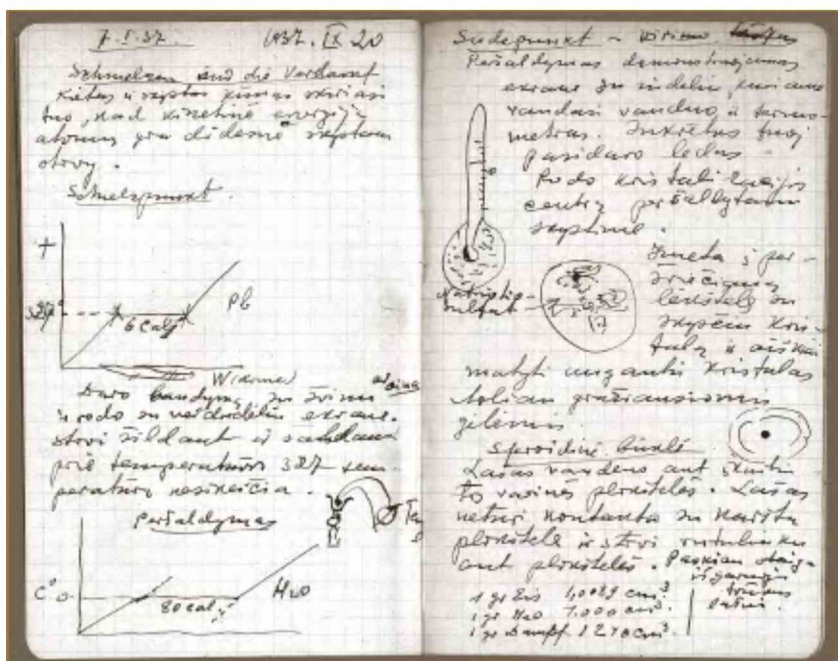 7.I.37. 1937.IX.20
Schmelzen und die Verdampf
Kietas ir skystas kūnas skiriasi
tuo, kad kinetinė energija
atomų yra didesnė skystam
stovy.
Schmelzpunkt.
T
327°
6 Cal
Pb
Wärme
Daro bandymą su švinu
ir rodo su veidrodėliu ekrane.
Švinui šildant ir sekdami
prie temperatūros 327 tem-
peratūra nesikeičia.
Peršaldymas
C° 0
80 cal
H₂O
Siedepunkt – virimo
Peršaldymas demonstruojamas
ekrane su indeliu, kuriame
randasi vanduo ir termo-
metras. Sukrėtus tuoj
pasidaro ledas
Rodo kristalizacijos
centrą peršaldytam
skystime.
0
Įmeta į per-
lėkštelę su
skysčiu kris-
talą ir aiškiai
matyti augantis kristalas
tolian gražiausiomis
gėlėmis.
Sferoidinė būklė
Lašas vandens ant įkaitin
tos varinės plokštelės. Lašas
neturi kontakto su karšta
plokštele ir stovi rutuliuku
ant plokštelės. Paskiau staiga
išgaruoja
1 gr Eis 1,0089 cm³
1 gr H₂O 1,000 cm³.
1 gr Dampf 1240 cm³.